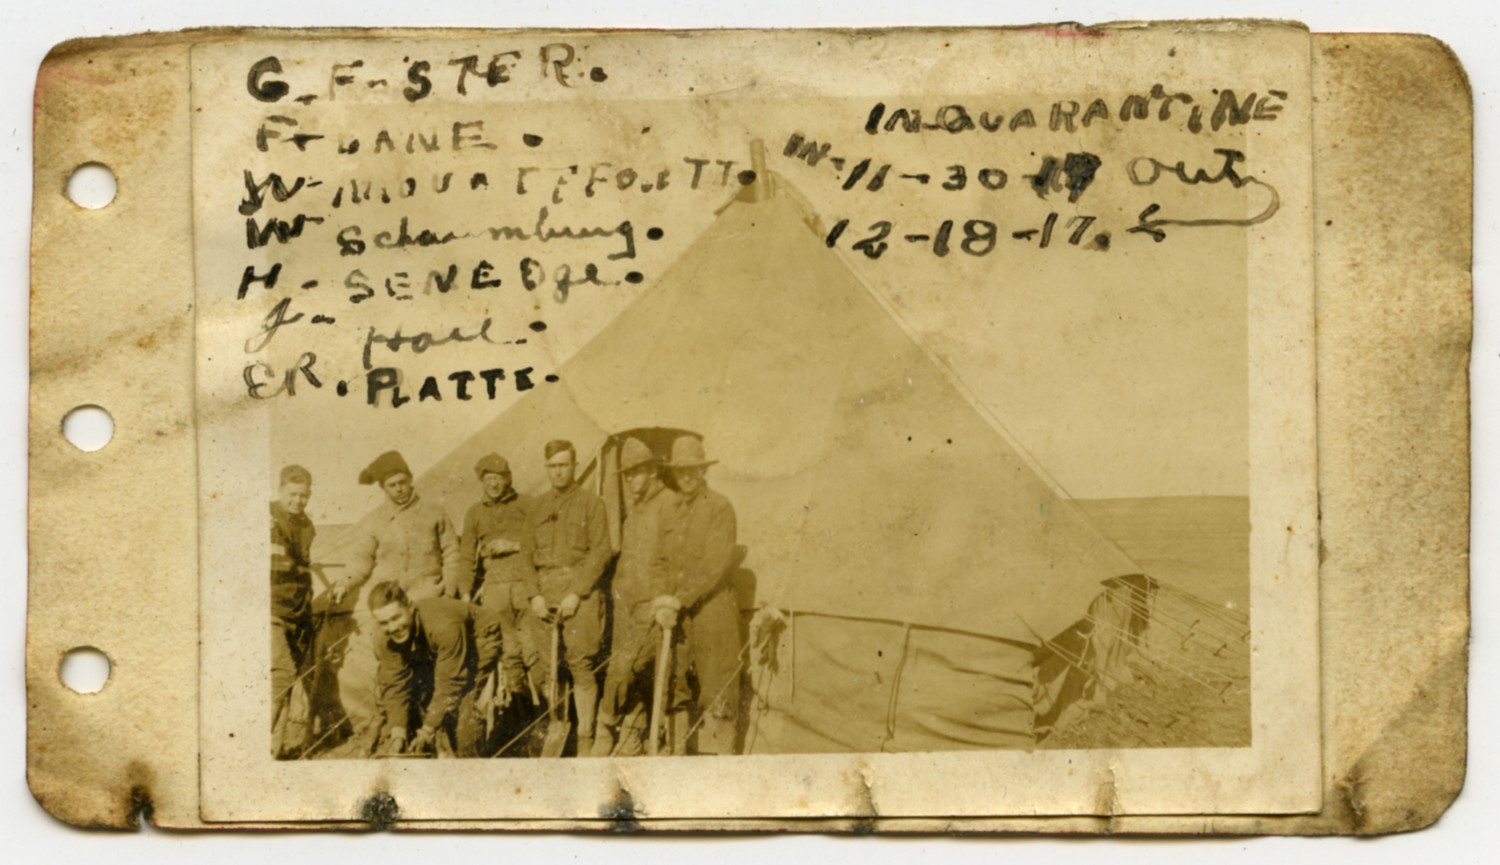 G. F-STER.
F- DANE.
W-
W Schaumburg.
H- SENEDge.
J- Hall.
ER. PLATTE.
IN QUARANTINE
IN- 11-30-17 Out
12-18-17.